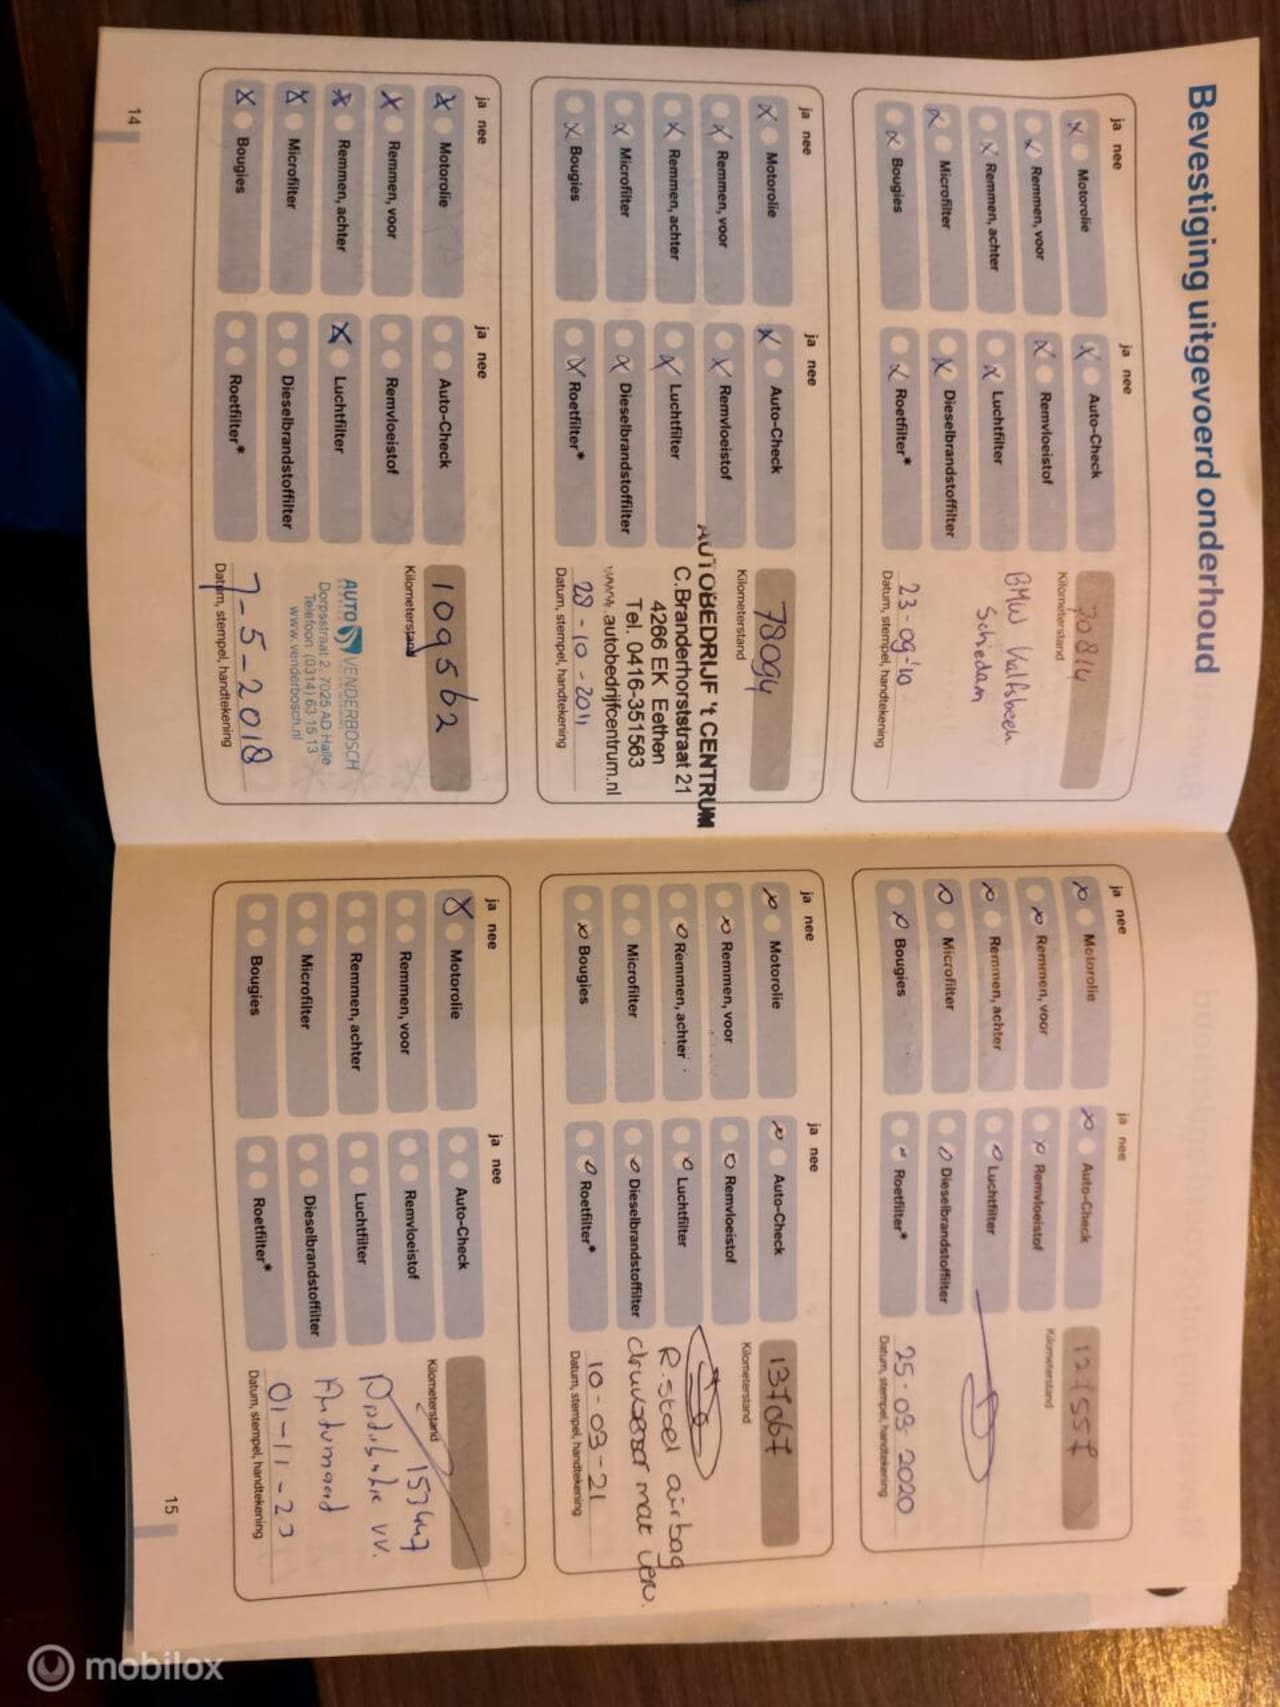 Bevestiging uitgevoerd onderhoud
ja nee
Motorolie
Remmen, voor
Remmen, achter
Microfilter
Bougies
ja nee
Auto-Check
Remvloeistof
Luchtfilter
Dieselbrandstoffilter
Roetfilter*
70814
Kilometerstand
BMW
Schiedam
23-09-'10
Datum, stempel, handtekening
ja nee
Motorolie
Remmen, voor
Remmen, achter
Microfilter
Bougies
ja nee
Auto-Check
Remvloeistof
Luchtfilter
Dieselbrandstoffilter
Roetfilter*
78094
Kilometerstand
AUTOBEDRIJF 't CENTRUM
C.Branderhorststraat 21
4266 EK Eethen
Tel. 0416-351563
www.autobedrijfcentrum.nl
28-10-2011
Datum, stempel, handtekening
ja nee
Motorolie
Remmen, voor
Remmen, achter
Microfilter
Bougies
ja nee
Auto-Check
Remvloeistof
Luchtfilter
Dieselbrandstoffilter
Roetfilter*
109562
Kilometerstand
AUTO VENDERBOSCH
Dorpsstraat 2, 7025 AD Halle
Telefoon (0314) 63 15 13
www.venderbosch.nl
7-5-2018
Datum, stempel, handtekening
14
ja nee
Motorolie
Remmen, voor
Remmen, achter
Microfilter
Bougies
ja nee
Auto-Check
Remvloeistof
Luchtfilter
Dieselbrandstoffilter
Roetfilter*
127557
Kilometerstand
25-03-2020
Datum, stempel, handtekening
ja nee
Motorolie
Remmen, voor
Remmen, achter
Microfilter
Bougies
ja nee
Auto-Check
Remvloeistof
Luchtfilter
Dieselbrandstoffilter
Roetfilter*
137067
Kilometerstand
R.stoel airbag
mat
10-03-21
Datum, stempel, handtekening
ja nee
Motorolie
Remmen, voor
Remmen, achter
Microfilter
Bougies
ja nee
Auto-Check
Remvloeistof
Luchtfilter
Dieselbrandstoffilter
Roetfilter*
Kilometerstand
153447
vv.
01-11-23
Datum, stempel, handtekening
15
mobilox